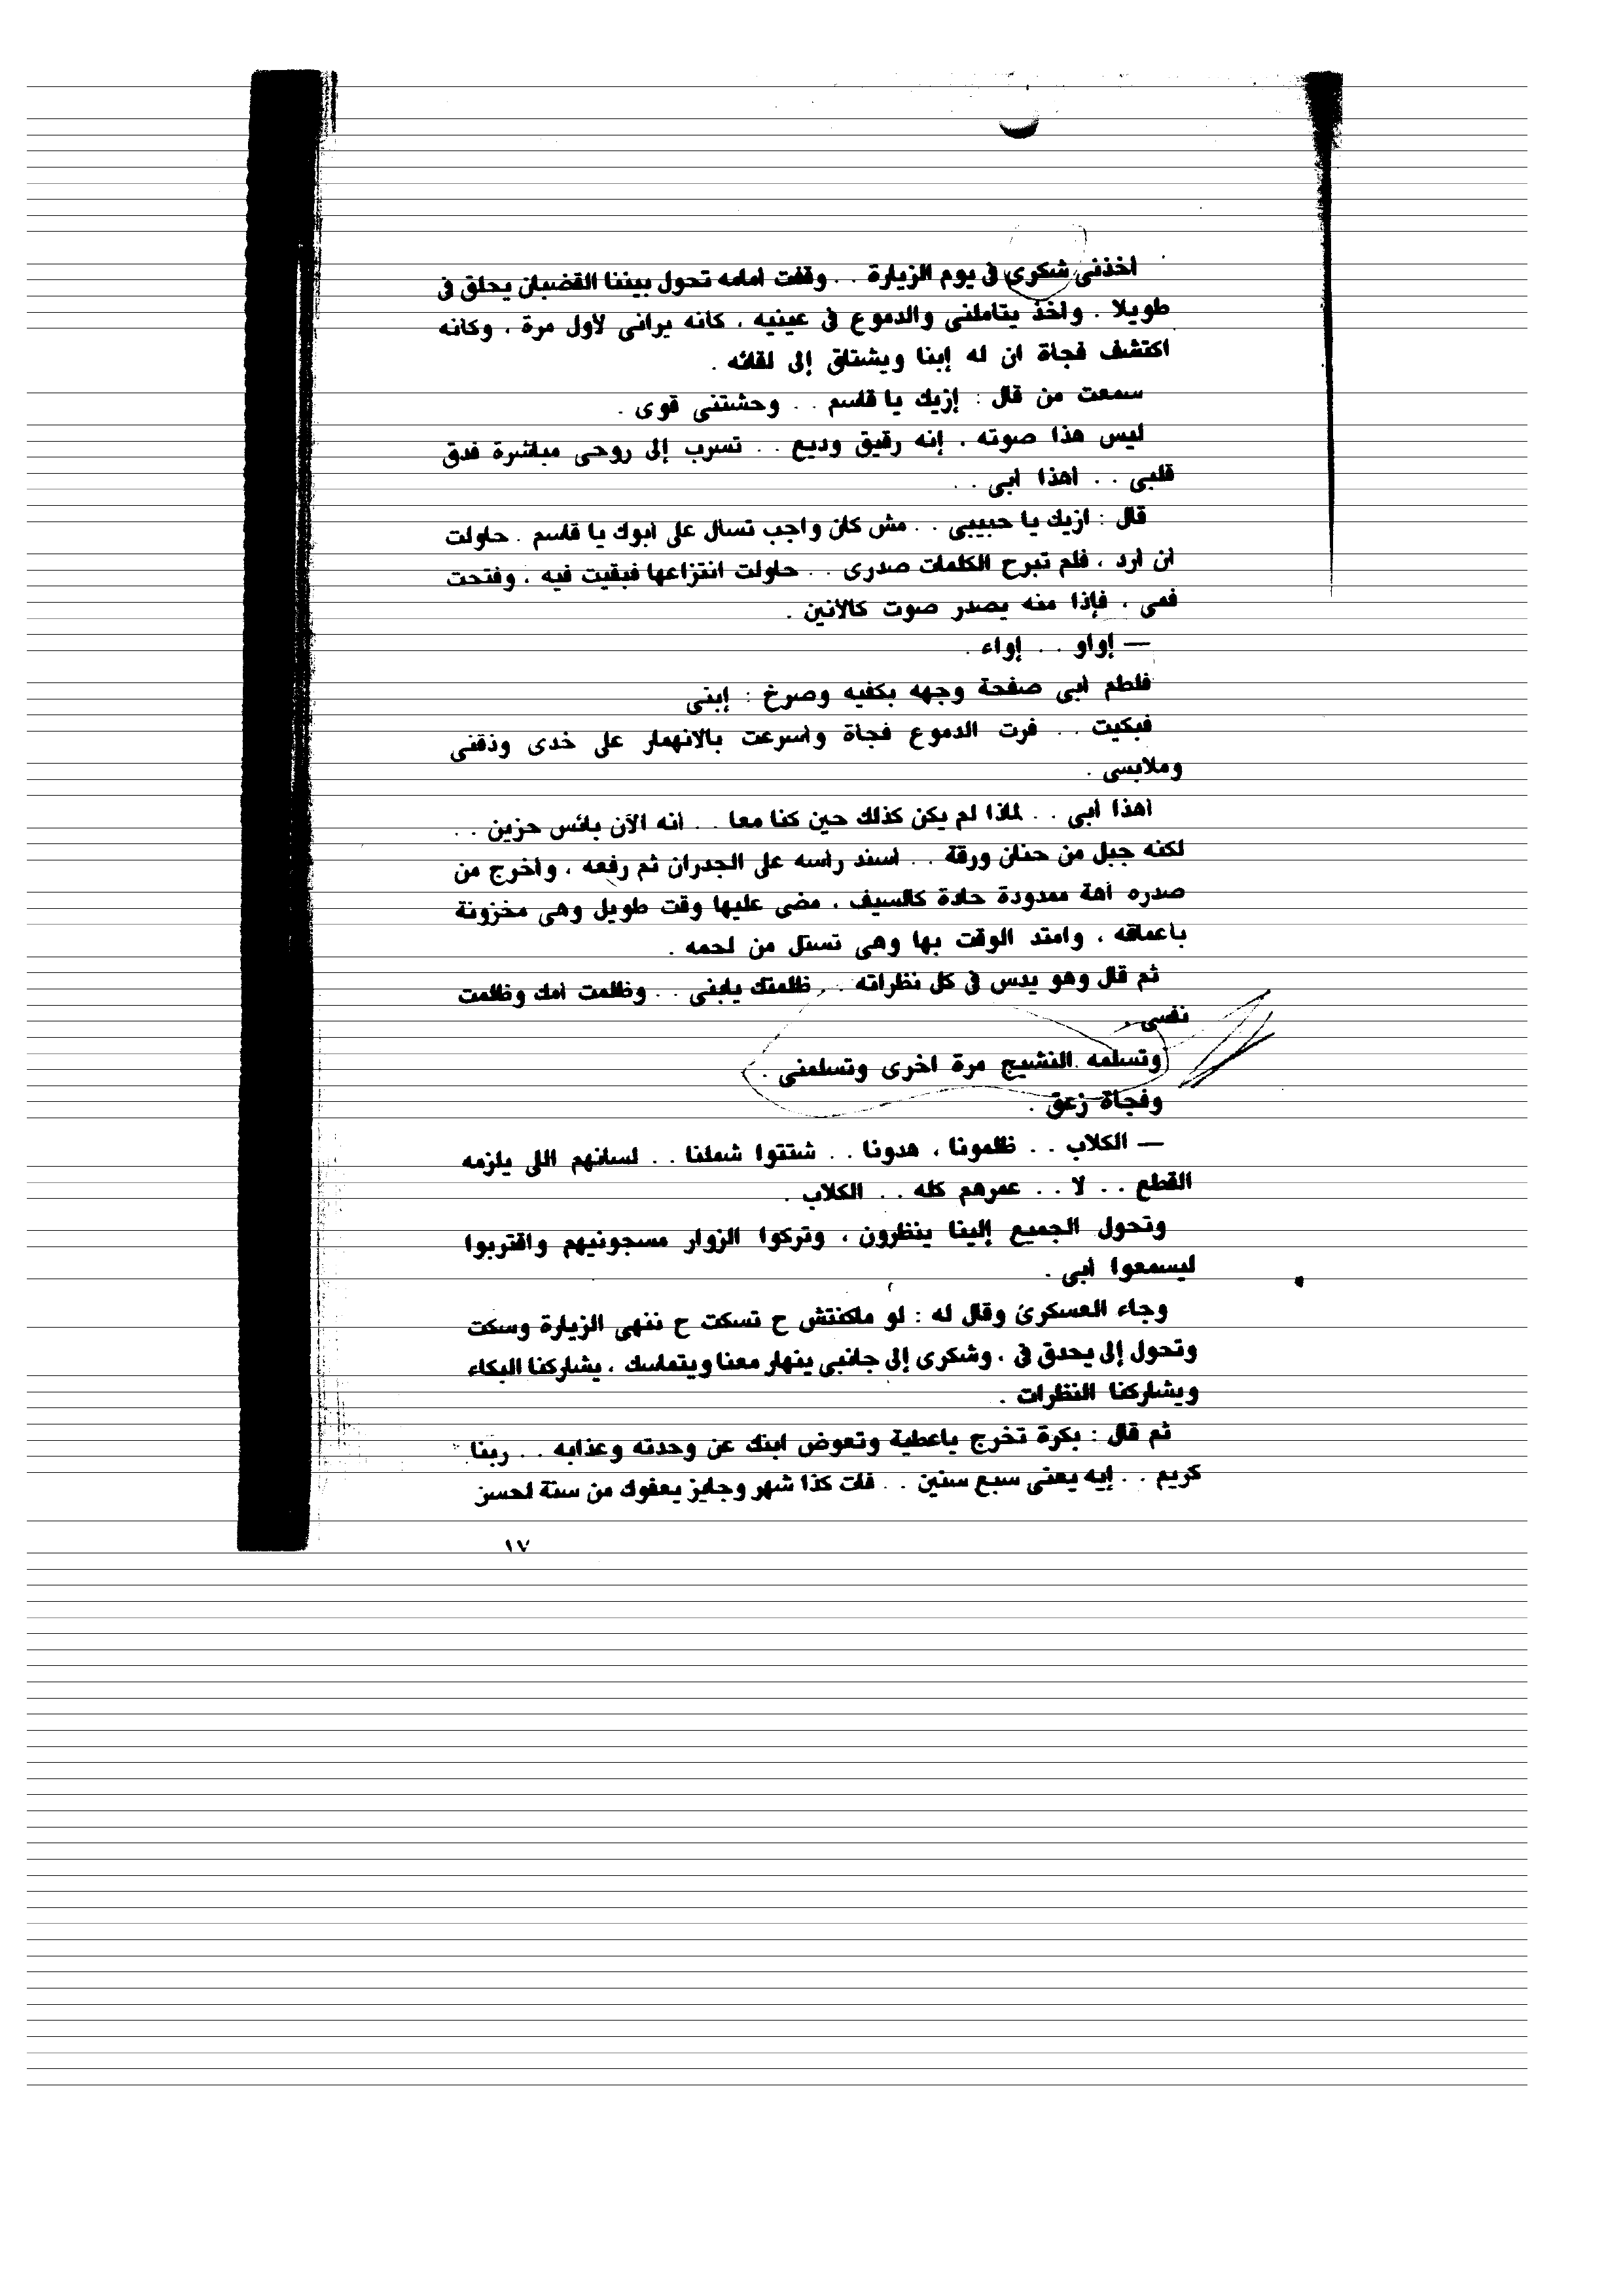 أخذنى شكرى فى يوم الزيارة . . وقفت أمامه تحول بيننا القضبان يحلق فى
طويلا . وأخذ يتأملنى والدموع فى عينيه ، كأنه يرانى لأول مرة ، وكأنه
اكتشف فجأة أن له إبنا ويشتاق إلى لقائه .
سمعت من قال : إزيك يا قاسم . . وحشتنى قوى .
ليس هذا صوته ، إنه رقيق وديع . . تسرب إلى روحى مباشرة فدق
قلبى . . أهذا أبى . .
قال : ازيك يا حبيبى . . مش كان واجب تسأل على أبوك يا قاسم . حاولت
أن أرد ، فلم تبرح الكلمات صدرى . . حاولت انتزاعها فبقيت فيه ، وفتحت
فمى ، فإذا منه يصدر صوت كالأنين .
— إواو . . إواء .
فلطم أبى صفحة وجهه بكفيه وصرخ : إبنى
فبكيت . . فرت الدموع فجأة وأسرعت بالانهمار على خدى وذقنى
وملابسى .
أهذا أبى . . لماذا لم يكن كذلك حين كنا معا . . أنه الآن بائس حزين . .
لكنه جبل من حنان ورقة . . أسند رأسه على الجدران ثم رفعه ، وأخرج من
صدره أهة ممدودة حادة كالسيف ، مضى عليها وقت طويل وهى مخزونة
بأعماقه ، وامتد الوقت بها وهى تستل من لحمه .
ثم قال وهو يدس فى كل نظراته . . ظلمتك يابنى . . وظلمت أمك وظلمت
نفسى .
وتسلمه النشيج مرة أخرى وتسلمنى .
وفجأة زعق .
— الكلاب . . ظلمونا ، هدونا . . شتتوا شملنا . . لسانهم اللى يلزمه
القطع . . لا . . عمرهم كله . . الكلاب .
وتحول الجميع إلينا ينظرون ، وتركوا الزوار مسجونيهم واقتربوا
ليسمعوا أبى .
وجاء العسكرى وقال له : لو ماكنتش ح تسكت ح ننهى الزيارة وسكت
وتحول إلى يحدق فى ، وشكرى إلى جانبى ينهار معنا ويتماسك ، يشاركنا البكاء
ويشاركنا النظرات .
ثم قال : بكرة تخرج ياعطية وتعوض ابنك عن وحدته وعذابه . . ربنا
كريم . . إيه يعنى سبع سنين . . فات كذا شهر وجايز يعفوك من سنة لحسن
١٧